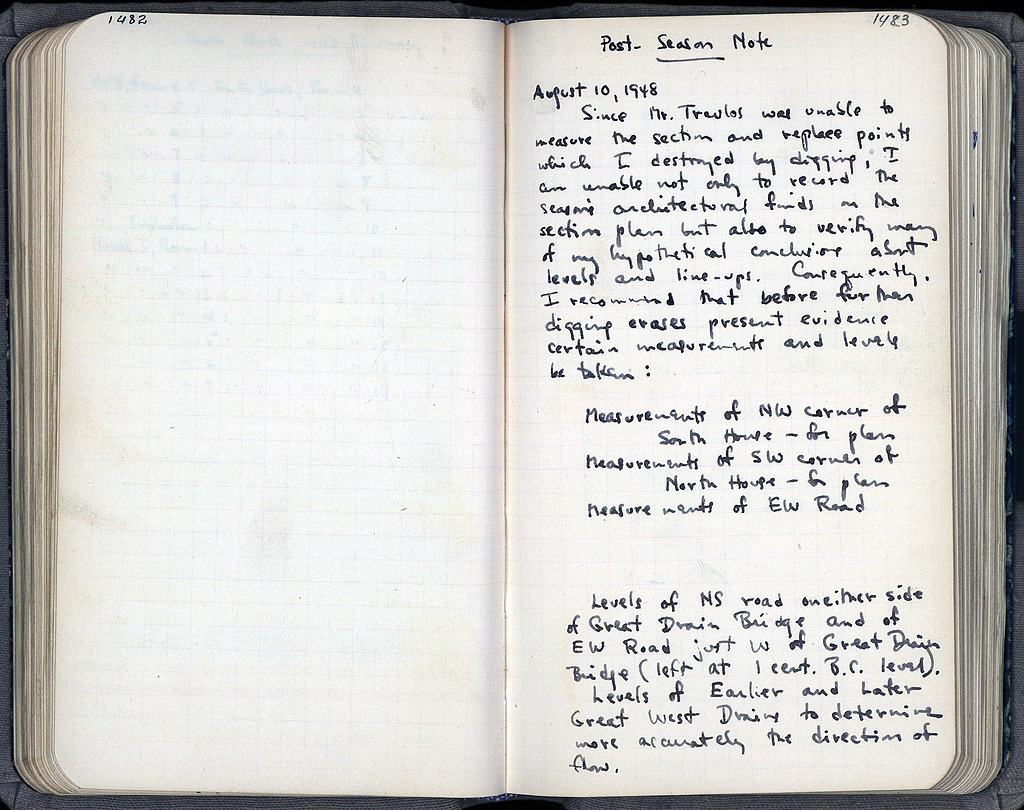 1482
1483
Post-Season Note
August 10, 1948
Since Mr. Travlos was unable to
measure the section and replace points
which I destroyed by digging, I
am unable not only to record the
season's architectural finds on the
section plan but also to verify many
of my hypothetical conclusions about
levels and line-ups. Consequently,
I recommend that before further
digging erases present evidence
certain measurements and levels
be taken:
Measurements of NW corner of
South House - for plan
Measurements of SW corner of
North House - for plan
Measurements of EW Road
Levels of NS road on either side
of Great Drain Bridge and of
EW Road just W of Great Drain
Bridge (left at 1 cent. B.C. level).
Levels of Earlier and Later
Great West Drains to determine
more accurately the direction of
flow.